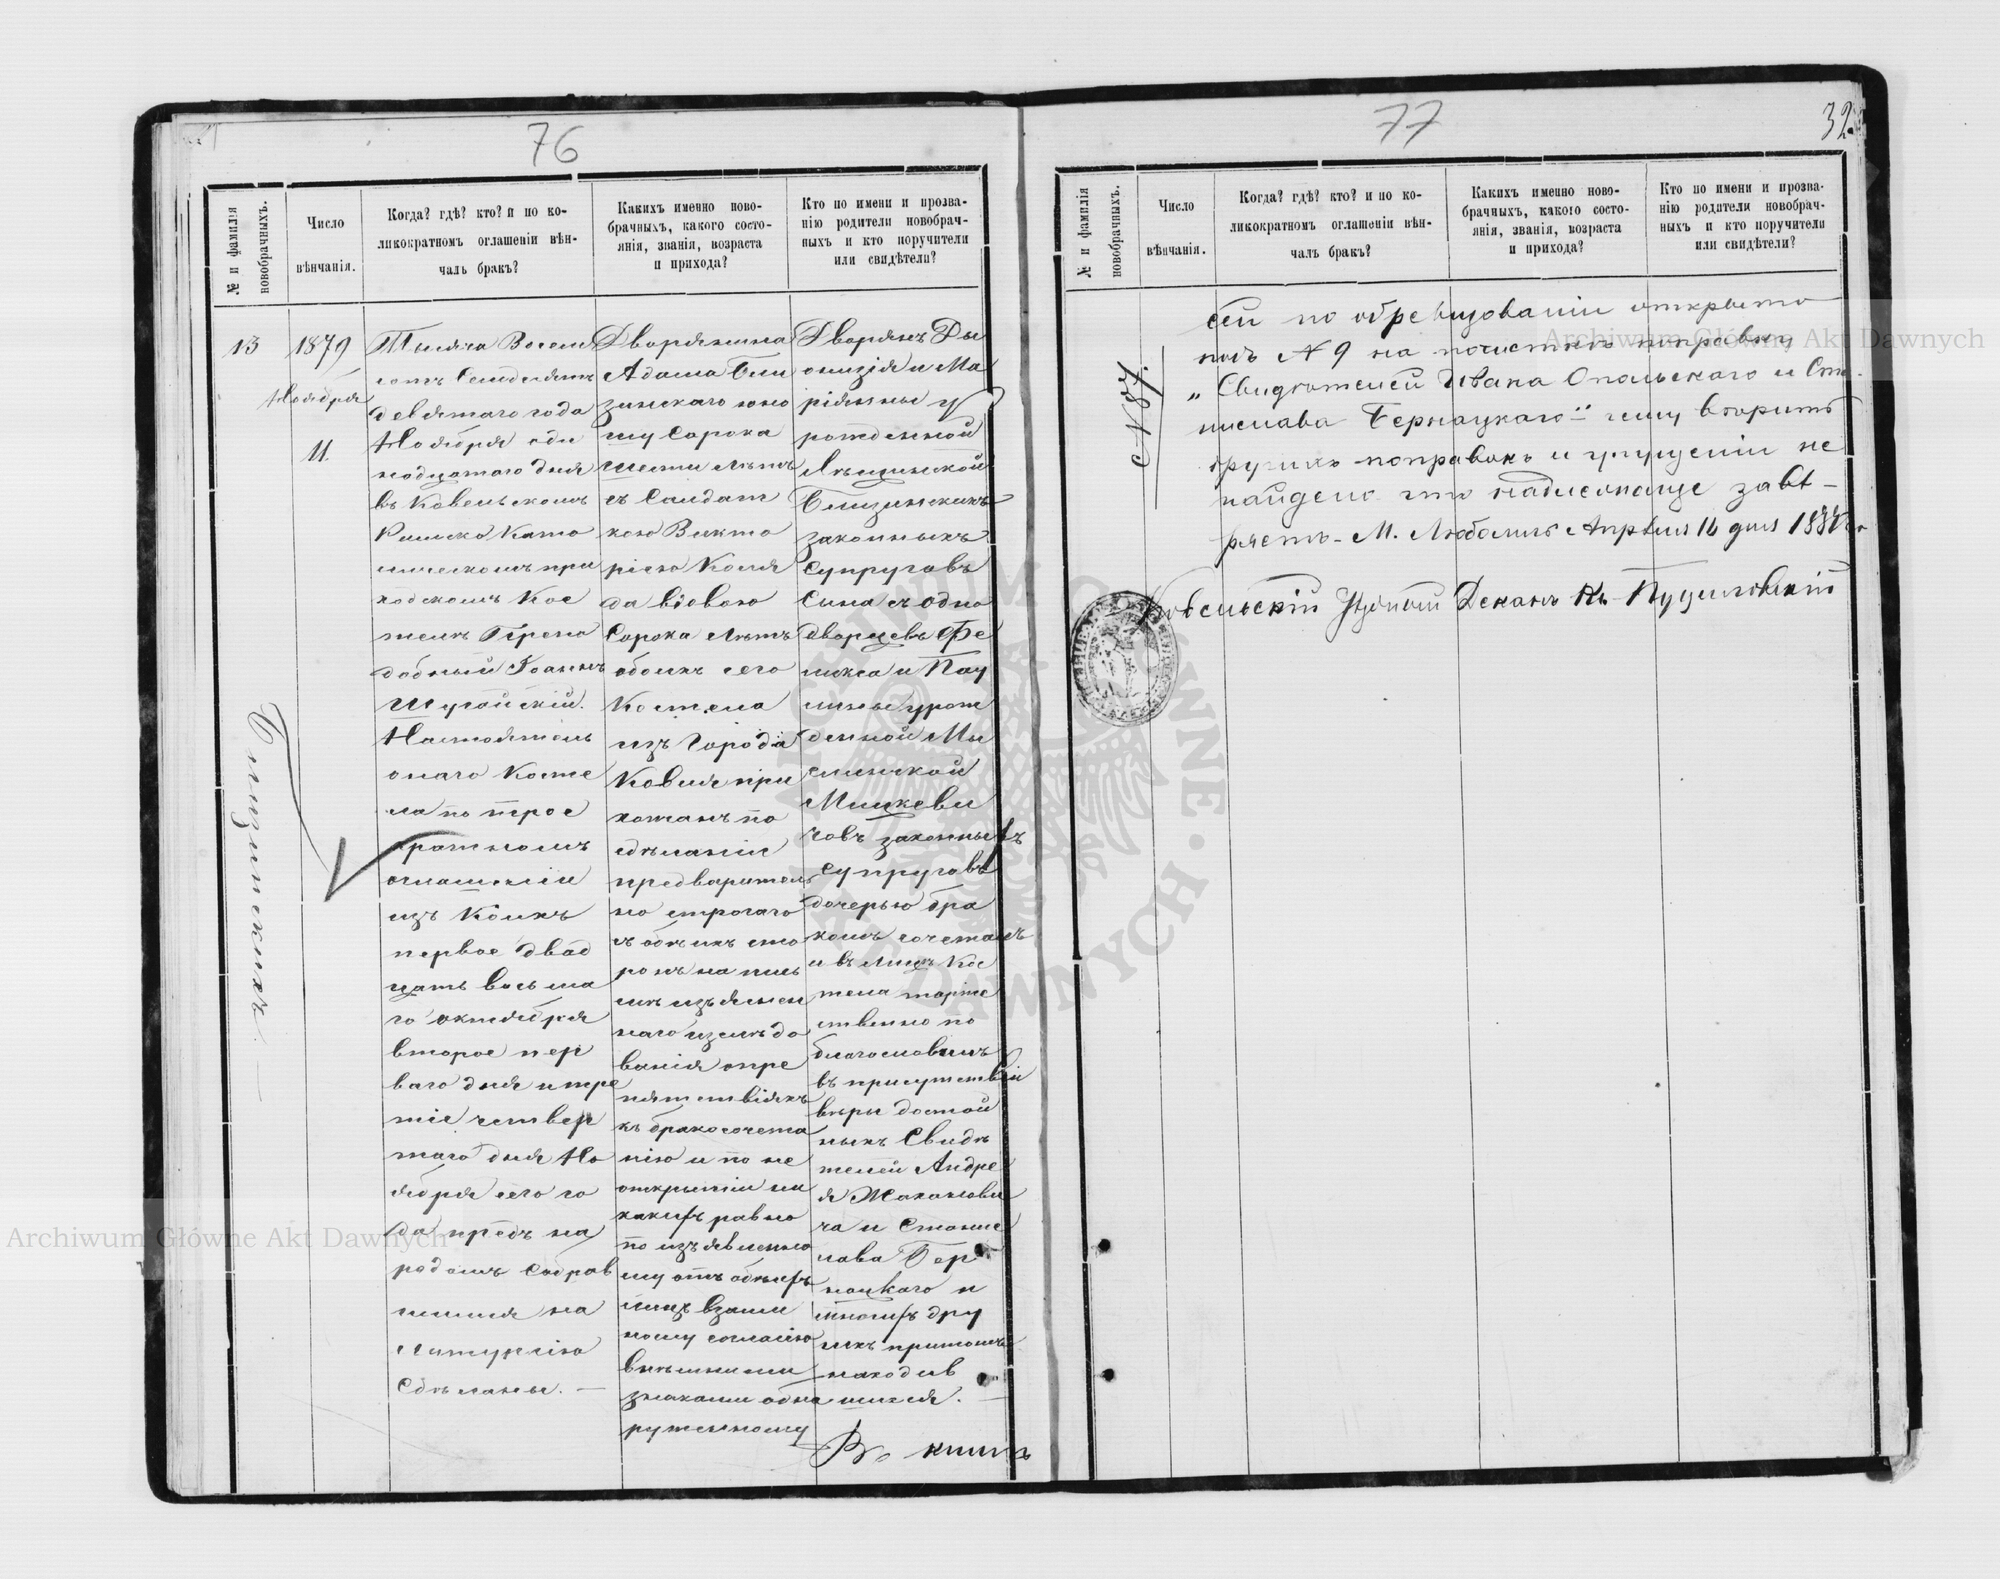 76
№ и фамилія новобрачныхъ.
Число вѣнчанія.
Когда? гдѣ? кто? и по ко-
ликократномъ оглашеніи вѣн-
чалъ бракъ?
Какихъ именно ново-
брачныхъ, какого состо-
янія, званія, возраста
и прихода?
Кто по имени и прозва-
нію родители новобрач-
ныхъ и кто поручители
или свидѣтели?
13
Близинскихъ. —
1879
Ноября
11.
Тысяча Восемь
сотъ Семдесятъ
девятаго года
Ноября оди
надцатаго дня
въ Ковельскомъ
Римско Като
лическомъ при
ходскомъ Кос
телѣ Препо
добный Іоаннъ
Настоятель
онаго Косте
ла по трое
кратномъ
оглашеніи
изъ коихъ
первое двад
цать восьма
го октября
второе пер
ваго дня и тре
тіе четвер
таго дня Но
ября сего го
да предъ на
родомъ собрав
шимся на
Литургію
сдѣланы. —
Дворянина
Адама Бли
зинскаго юно
шу сорока
шести лѣтъ
съ Солдат
кою Викто
ріею Коля
да вдовою
Сорока лѣтъ
обоихъ сего
Костела
изъ Города
Ковля при
хожанъ по
сдѣланіи
предваритель
но строгаго
съ обѣихъ сто
ронъ на пись
мѣ изъяснен
наго изслѣдо
ванія о пре
пятствіяхъ
къ бракосочета
нію и по не
открытіи ни
какихъ равно
по изъявленно
му отъ обѣихъ
лицъ взаим
ному согласію
внѣшними
знаками обна
руженному
Дворянъ Ды
онизія и Ма
ріянны у
рожденной
Близинскихъ
законныхъ
супруговъ
Сына съ одно
дворцевъ Фе
ликса и Пау
лины урож
денной Мы
слинской
Мицкеви
човъ законныхъ
Супруговъ
дочерью бра
комъ сочеталъ
и въ лицѣ Кос
тела торже
ственно по
благословилъ
въ присутствіи
вѣры достой
ныхъ Свидѣ
телей Андре
я Жакамови
ча и Станис
лава Бер
нацкаго и
многихъ дру
гихъ притомъ
находив
шихся. —
Въ книгѣ
77
32
№ и фамилія новобрачныхъ.
Число вѣнчанія.
Когда? гдѣ? кто? и по ко-
ликократномъ оглашеніи вѣн-
чалъ бракъ?
Какихъ именно ново-
брачныхъ, какого состо-
янія, званія, возраста
и прихода?
Кто по имени и прозва-
нію родители новобрач-
ныхъ и кто поручители
или свидѣтели?
сей по обревидованіи открыто
подъ № 9 на почисткѣ поправку
„Свидѣтелей Ивана Опольскаго и Ста-
нислава Бернацкаго"
другихъ поправокъ и упущеній не
найдено что надлежаще завѣ-
ряетъ. М. Любомль Апрѣля 16 дня
Ковельскій Деканъ Кс.
Archiwum Główne Akt Dawnych
Archiwum Główne Akt Dawnych